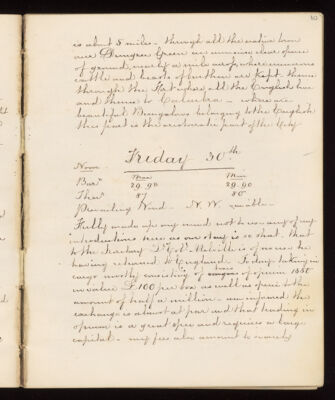 10
is about 5 miles - through all the native town
over Dungree Green an immense clear space
of ground, nearly a mile across, where immense
cattle and beasts of burthen are kept, thence
through the , all the English town
and thence to Calcutta - where are
beautiful Bungalows belonging to the English
this part is the aristocratic part of the City
Friday 30th.
Noon
Max Min
Bar 29.90 29.90
Ther 87 80
Prevailing Wind - N. W. variable
Fully made up my mind not to use any of my
introductions here as our stay is so short, that
to the Lt Col Melville is of no use he
having returned to England. To day taking in
cargo worthy consisting of chests of opium 1550
in value £100 per box as well as specie to the
amount of half a million - am informed the
exchange is almost at par and that trading in
opium is a great spec and requires a large
capital - my fees also amount to nearly